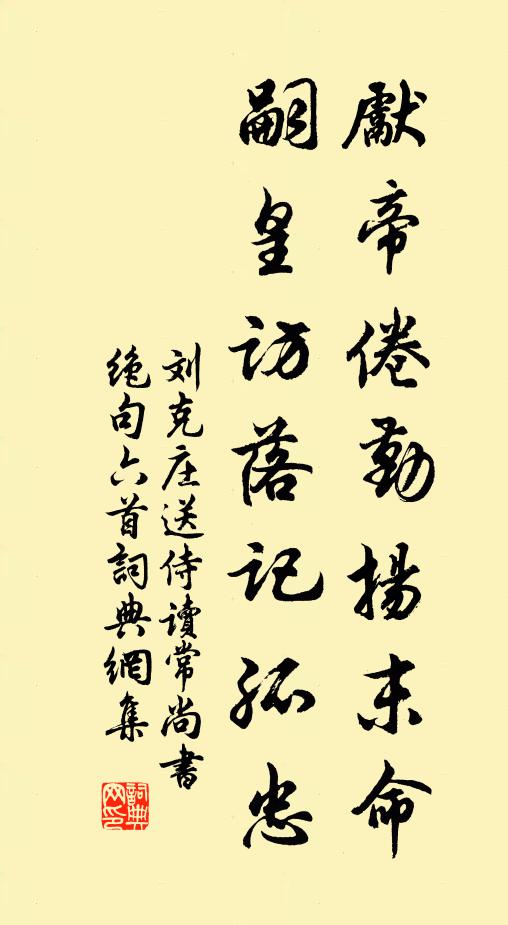 獻帝倦勤揚末命
嗣皇訪落記孤忠
刘克庄送侍讀常尚書
绝句六首詞典網集
詞典网印